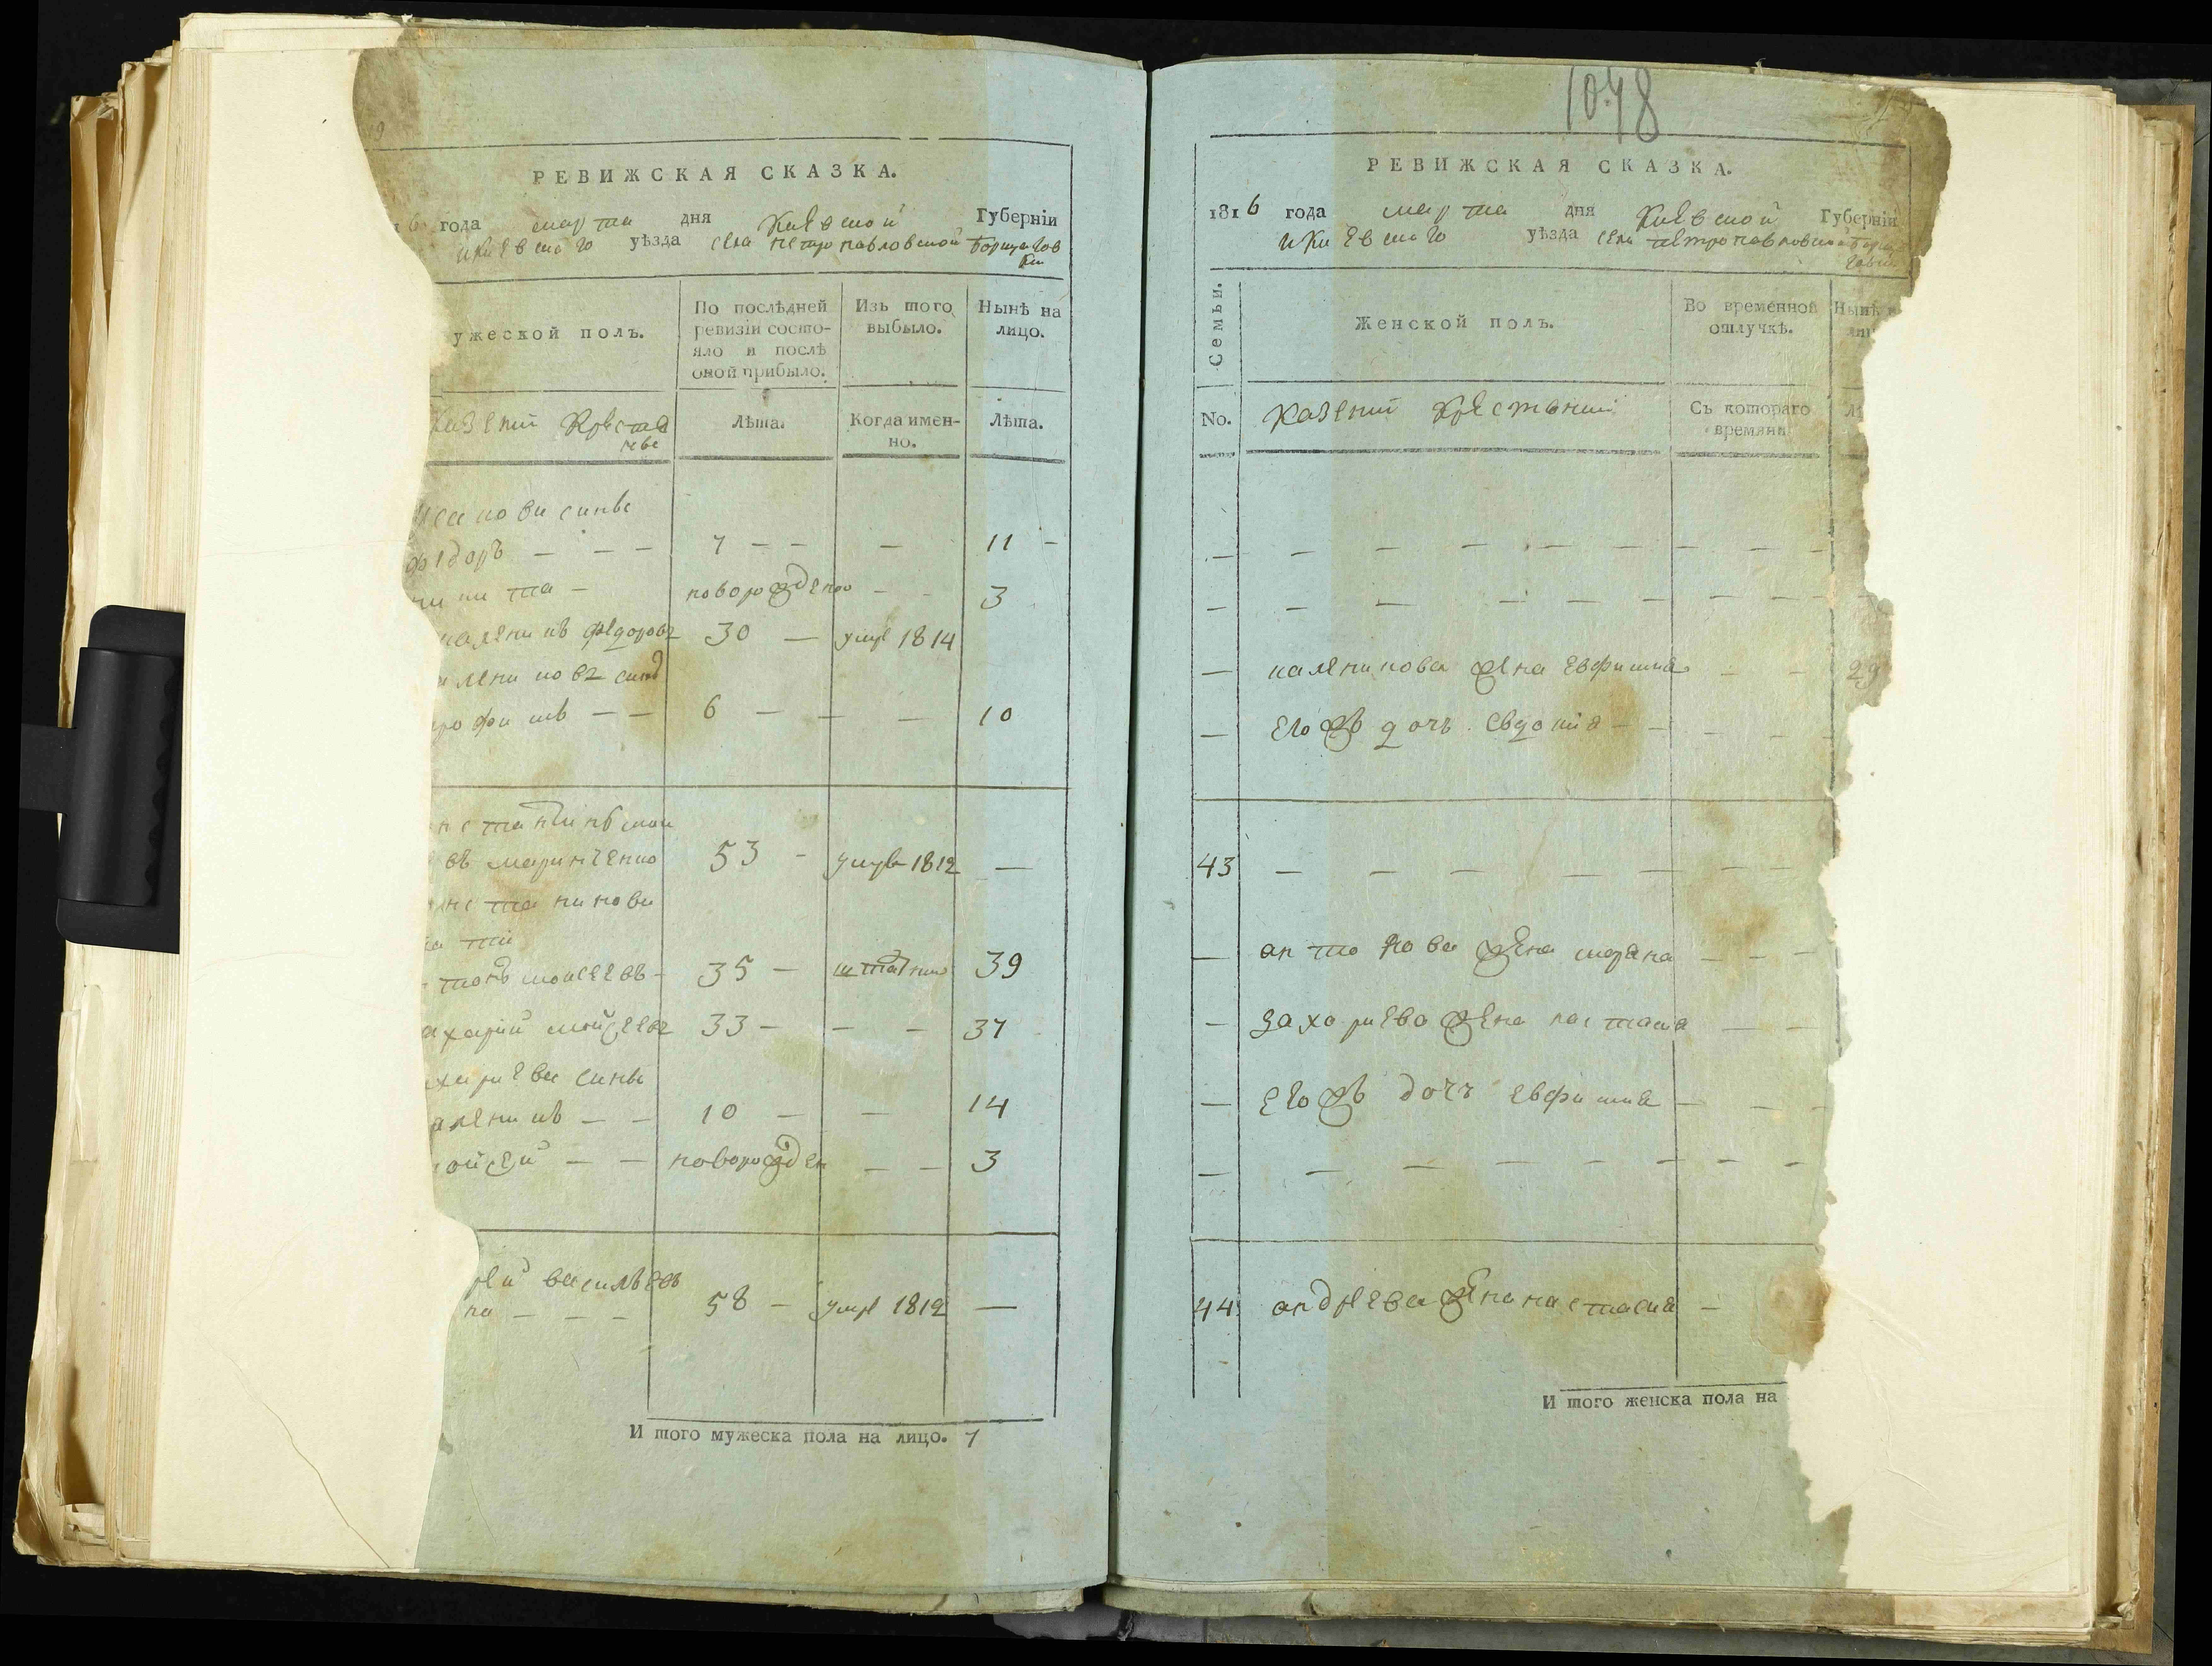 РЕВИЖСКАЯ СКАЗКА.
6 года марта дня Киевской Губерніи
Киевскаго уѣзда села Петропавловской Борщагов
ки
ужеской полъ.
По послѣдней ревизіи состояло и послѣ оной прибыло.
Изъ того выбыло.
Нынѣ на лицо.
Казений Крестя
нье
Лѣта.
Когда имен-
но.
Лѣта.
синве
Федоръ — — — 7 — — — 11 —
ки та — новорожденно — — 3
каленикъ федоровъ 30 — умре 1814
алениковъ синъ
рофимъ — — 6 — — — 10
нстантинъ мои
евъ маринченко 53 — умре 1812 —
нстанинови
тонъ моисеевъ — 35 — 39
ахарий мойсеевъ 33 — — — 37
хариеви синве
аленикъ — — 10 — — 14
ойсей — — новорожден — — 3
рей василъевъ
на — — — 58 — умре 1812 —
И того мужеска пола на лицо. 7
1048
РЕВИЖСКАЯ СКАЗКА.
1816 года марта дня Киевской Губерніи
Киевскаго уѣзда села Петропавловской
Семьи.
Женской полъ.
Во временной отлучкѣ.
Нынѣ
No.
Казений Крестяний
Съ котораго
времяни
— — — — — — — — —
— — — — — — — — —
— каленикова жена евфимия — — 29
— егожъ дочъ евдокия — — — —
43 — — — — — — —
— антонова жена маряна — — —
— захариева жена настасия — —
— егожъ дочъ евфимия — — —
— — — — — — — —
44 андреева жена настасия —
И того женска пола на